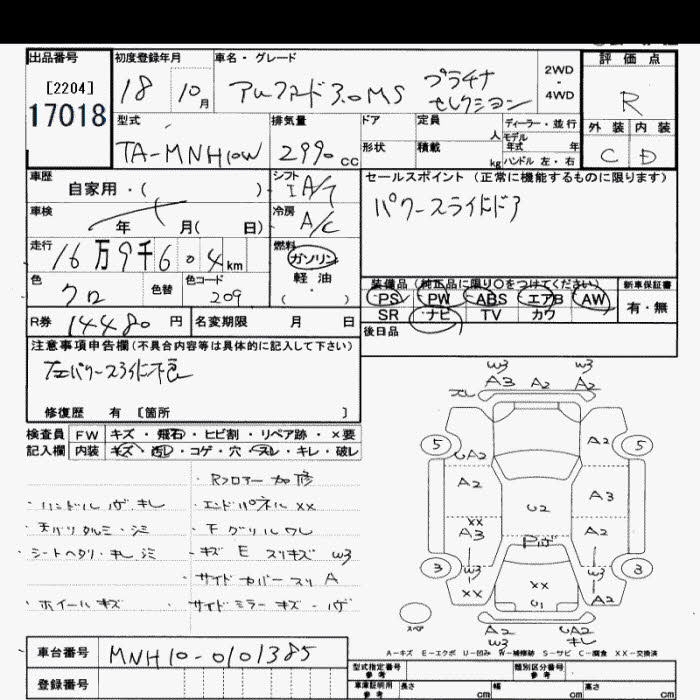 出品番号
[2204]
17018
初度登録年月
18 10月
車名・グレード
アルファード 3.0MS プラチナ
セレクション
2WD・4WD
評価点
R
外装 内装
C D
型式
TA-MNH10W
排気量
2990 cc
ドア
形状
定員 人
積載 kg
ディーラー・並行
モデル年式 年
ハンドル 左・右
車歴
自家用・( )
シフト
I A/T
セールスポイント (正常に機能するものに限ります)
パワースライドドア
車検
年 月( 日)
冷房
A/C
走行
16万9千604km
燃料
ガソリン
軽油
( )
色
クロ
色替
色コード
209
装備品 (純正品に限り○をつけてください)
PS PW ABS エアB AW
SR ナビ TV カワ
新車保証書
有・無
R券 14480 円
名変期限 月 日
後日品
注意事項申告欄(不具合内容等は具体的に記入して下さい)
左パワースライド不良
修復歴 有 [箇所 ]
検査員 FW キズ・飛石・ヒビ割・リペア跡・×要
記入欄 内装 キズ・汚レ・コゲ・穴・スレ・キレ・破レ
Rフロアー 加修
・ハンドル ハゲ キレ
・エンドパネル XX
・天バリ タルミ・シミ
・下グリル ワレ
・シートヘタリ・キレ シミ
・キズ E スリキズ W3
・サイドカバー スリ A
・ホイールキズ
・サイドミラー キズ・ハゲ
W3 W3
A3 A2 A2
5 5
UA2 A2
A2 A3
U2
XX
A3 A2
3 3
W3 W3
XX XX A2
U1
スペア
A2 UA2
W3 キレ
A-キズ E-エクボ U-凹み W-補修跡 S-サビ C-腐食 XX-交換済
車台番号
MNH10-0101385
登録番号
型式指定番号
参考
類別区分番号
参考
車庫証明用
参考
長さ cm 幅 cm 高さ cm